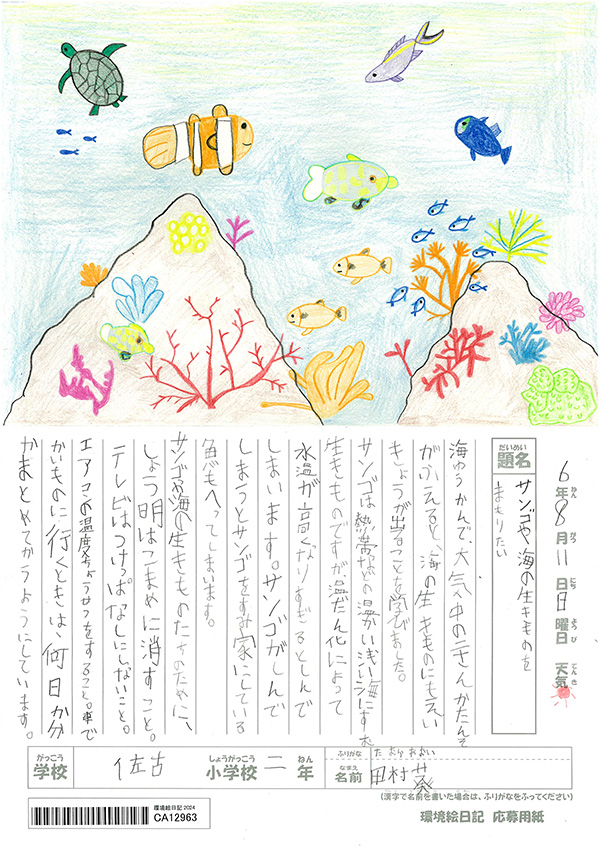 6年8月11日日曜日 天気
ねん がつ にち ようび てんき
だいめい
題名
サンゴや海の生きものを
まもりたい
海ゆうかんで、大気中の二さんかたんそ
がふえると、海の生きものにもえい
きょうが出ることを学びました。
サンゴは熱帯などの温かい浅い海にすむ
生きものですが温だん化によって
水温が高くなりすぎるとしんで
しまいます。サンゴがしんで
しまうとサンゴをすみ家にしている
魚もへってしまいます。
サンゴや海の生きものたちのために、
しょう明はこまめに消すこと。
テレビはつけっぱなしにしないこと。
エアコンの温度ちょうせつをすること。車で
かいものに行くときは、何日か分
かまとめてかうようにしています。
がっこう
学校
佐古
しょうがっこう
小学校
二
ねん
年
ふりがな
たむらあおい
なまえ
名前
田村葵
(漢字で名前を書いた場合は、ふりがなをふってください)
環境絵日記2024
CA12963
環境絵日記 応募用紙